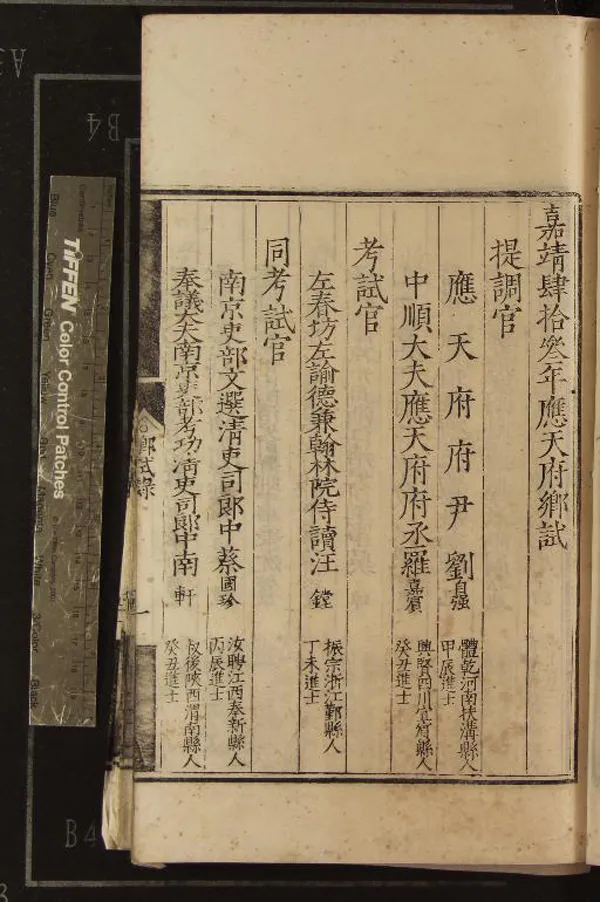 嘉靖肆拾叄年應天府鄉試
提調官
應天府府尹劉自強 體乾河南扶溝縣人 甲辰進士
中順大夫應天府府丞羅嘉賓 興賢四川宜賓縣人 癸丑進士
考試官
左春坊左諭德兼翰林院侍讀汪鏜 振宗浙江鄞縣人 丁未進士
同考試官
南京吏部文選清吏司郎中蔡國珍 汝聘江西奉新縣人 丙辰進士
奉議大夫南京吏部考功清吏司郎中南軒 叔後陝西渭南縣人 癸丑進士
鄉試錄
一
TIFFEN Color Control Patches
B4
B4
A3